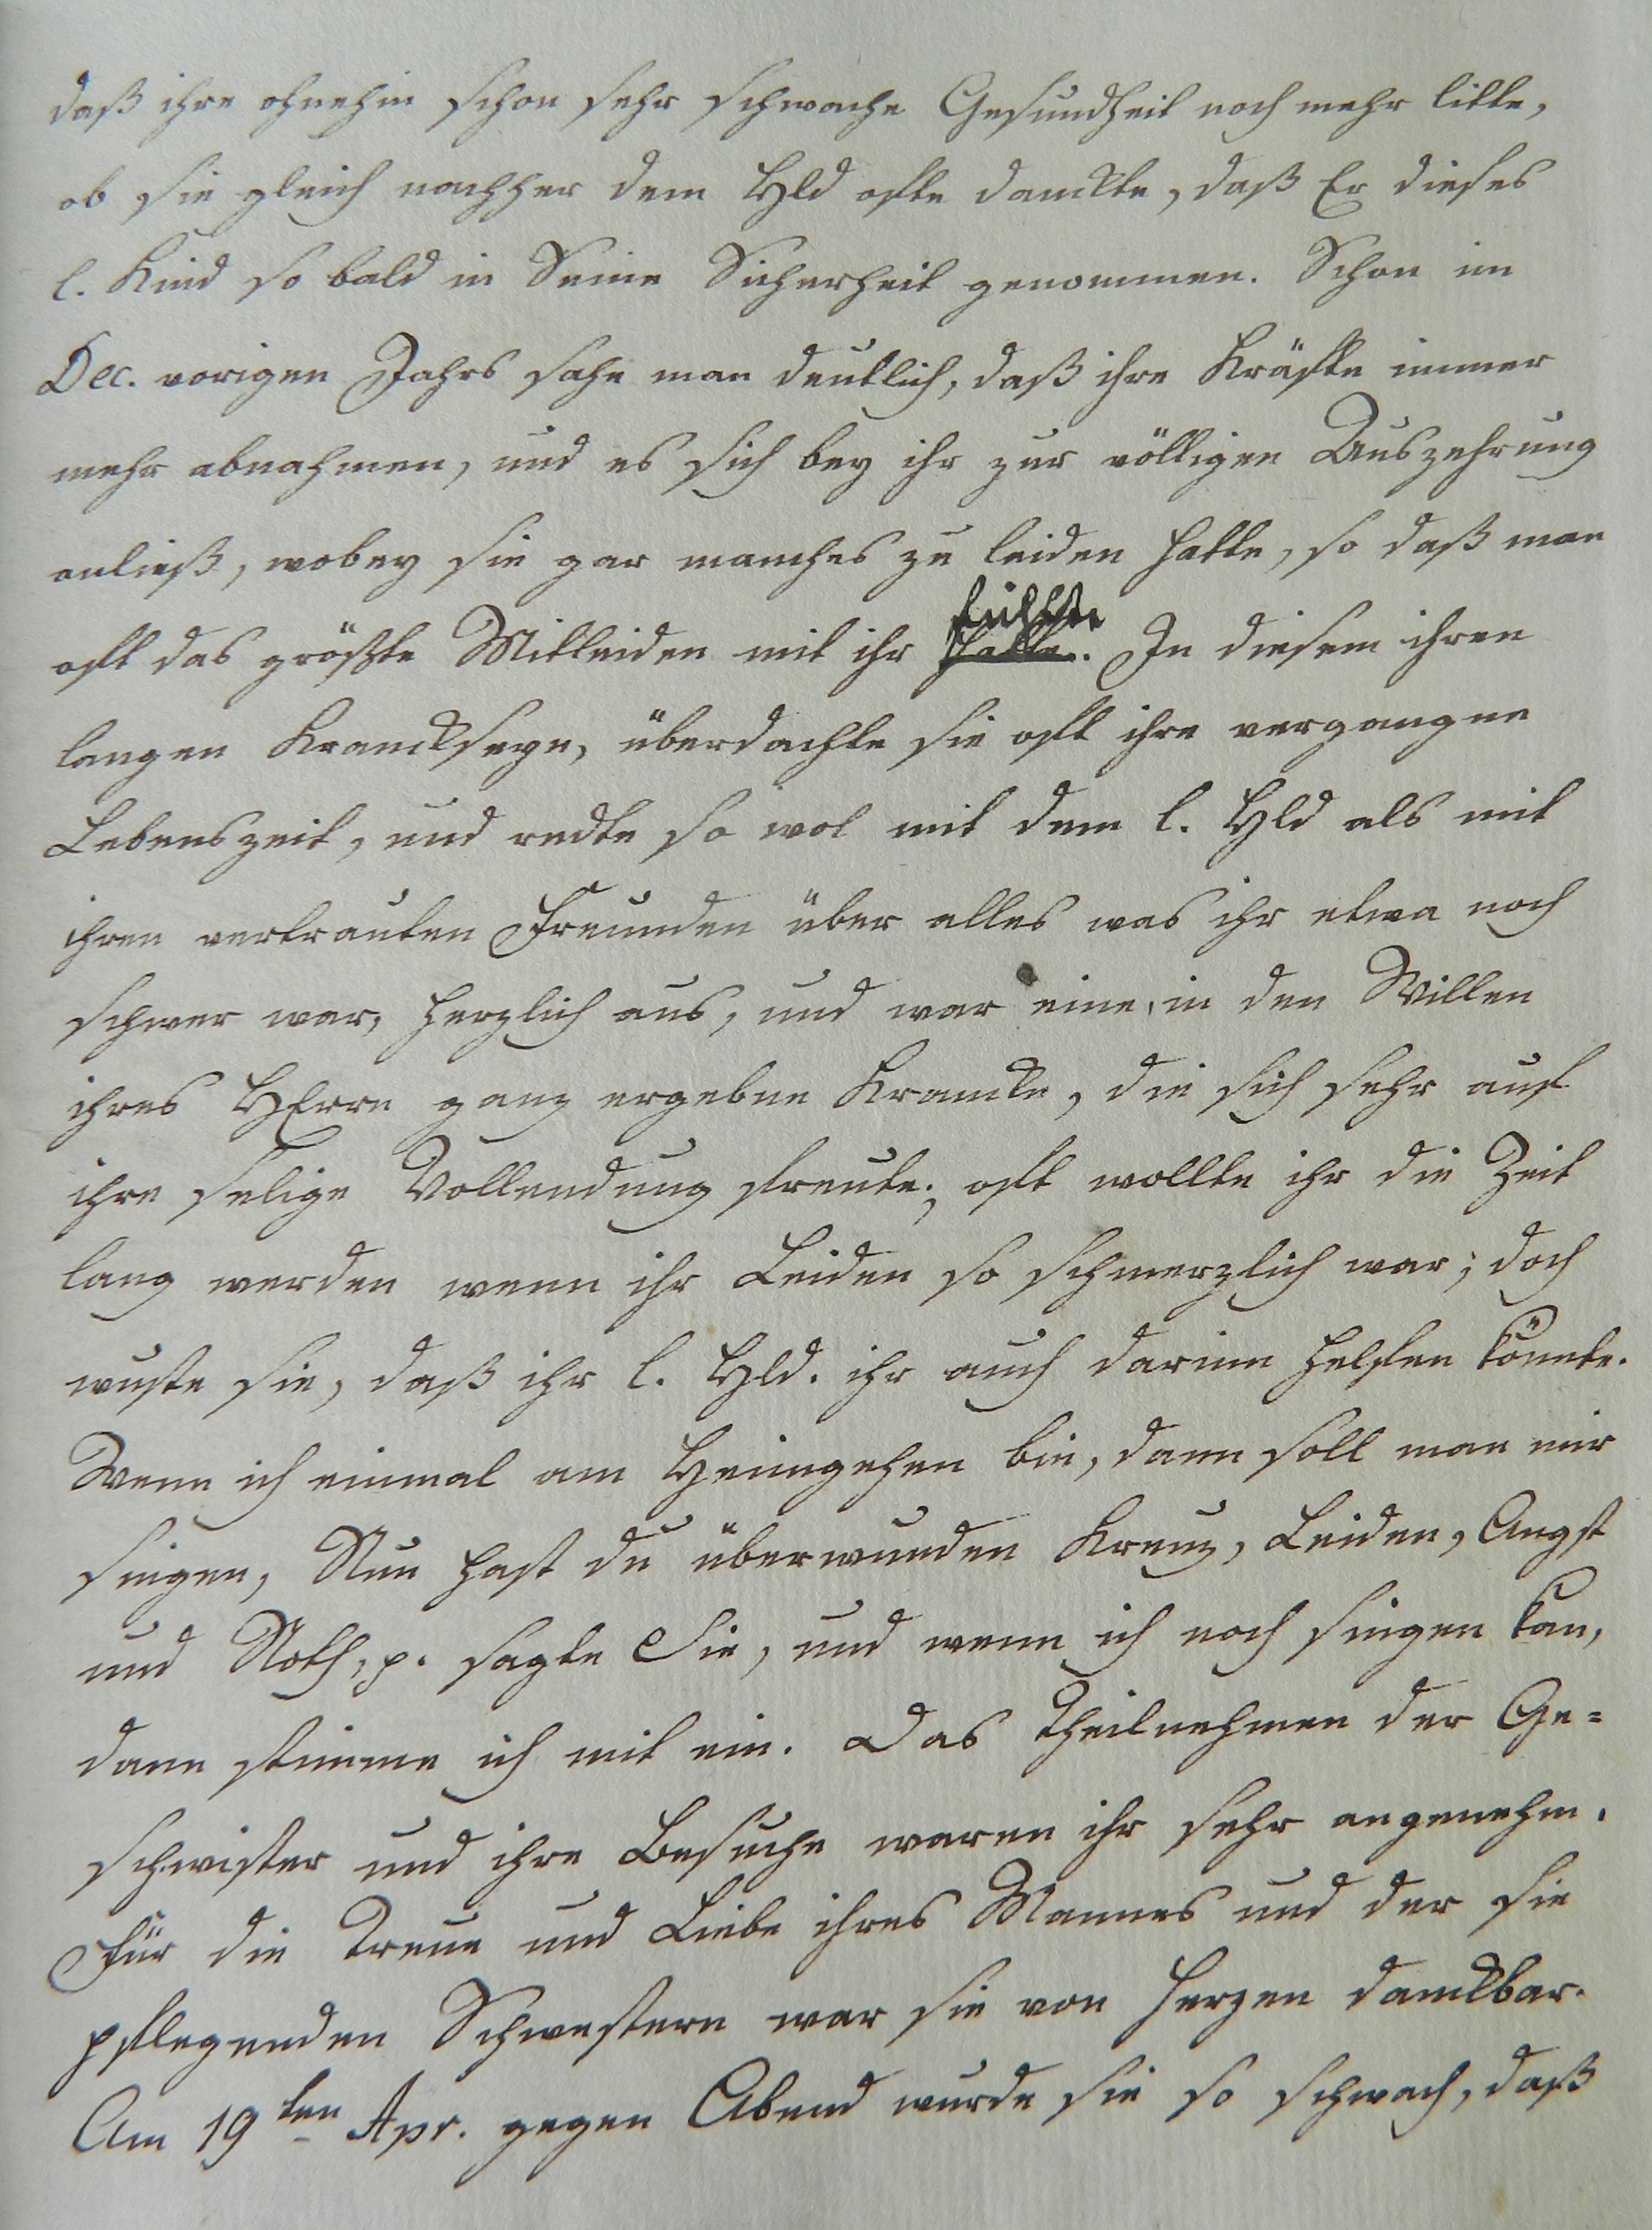 daß ihre ohnehin schon sehr schwache Gesundheit noch mehr litte,
ob sie gleich nachher dem Hld ofte danckte, daß Er dieses
l. Kind so bald in Seine Sicherheit genommen. Schon im
Dec. vorigen Jahrs sahe man deutlich, daß ihre Kräfte immer
mehr abnahmen, und es sich bey ihr zur völligen Auszehrung
anließ, wobey sie gar manches zu leiden hatte, so daß man
oft das größte Mitleiden mit ihr hatte. fühlte In diesem ihren
langen Kranckseyn, überdachte sie oft ihre vergangne
Lebenszeit, und redte so wol mit dem l. Hld als mit
ihren vertrauten Freunden über alles was ihr etwa noch
schwer war, herzlich aus, und war eine, in den Willen
ihres HErrn ganz ergebne Krancke, die sich sehr auf
ihre selige Vollendung freute; oft wollte ihr die Zeit
lang werden wenn ihr Leiden so schmerzlich war; doch
wuste sie, daß ihr l. Hld. ihr auch darinn helfen könnte.
Wenn ich einmal am Heimgehen bin, dann soll man mir
singen, Nun hast du überwunden Kreuz, Leiden, Angst
und Noth, p. sagte Sie, und wenn ich noch singen kan,
dann stimme ich mit ein. Das Theilnehmen der Ge=
schwister und ihre Besuche waren ihr sehr angenehm.
Für die Treue und Liebe ihres Mannes und der sie
pflegenden Schwestern war sie von Herzen danckbar.
Am 19ten Apr. gegen Abend wurde sie so schwach, daß